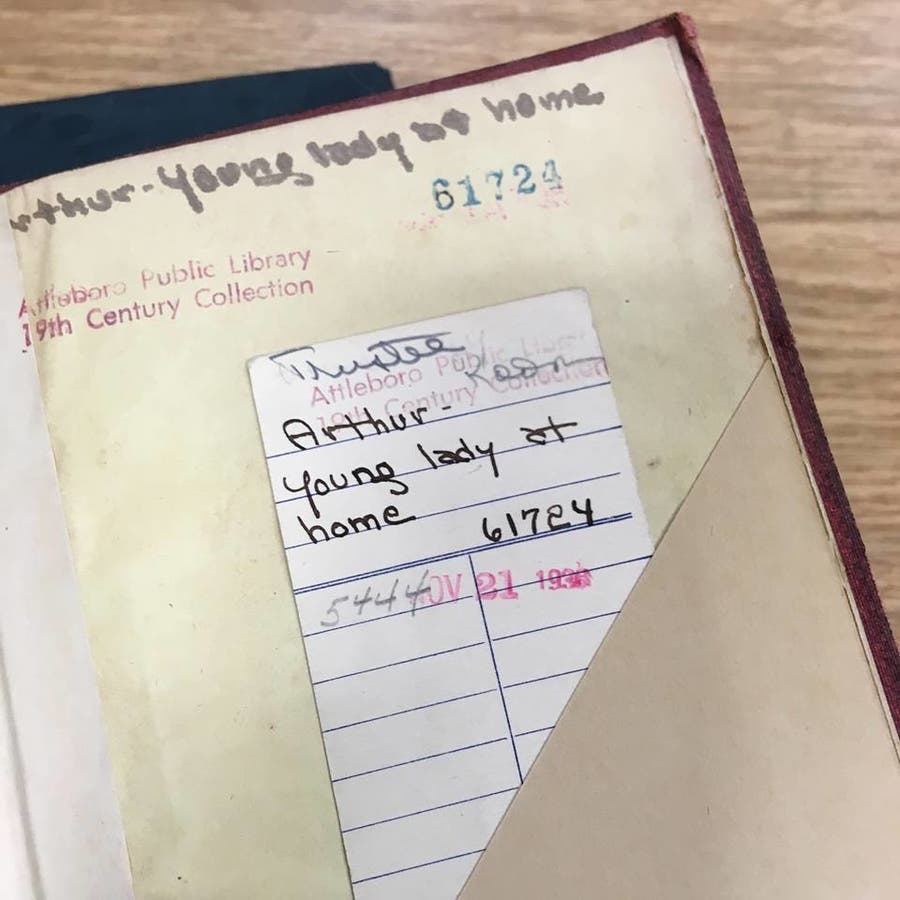 Arthur - Young lady at home
61724
Attleboro Public Library
19th Century Collection
Trustee Room
Attleboro Public Library
19th Century Collection
Arthur -
young lady at
home 61724
5444 NOV 21